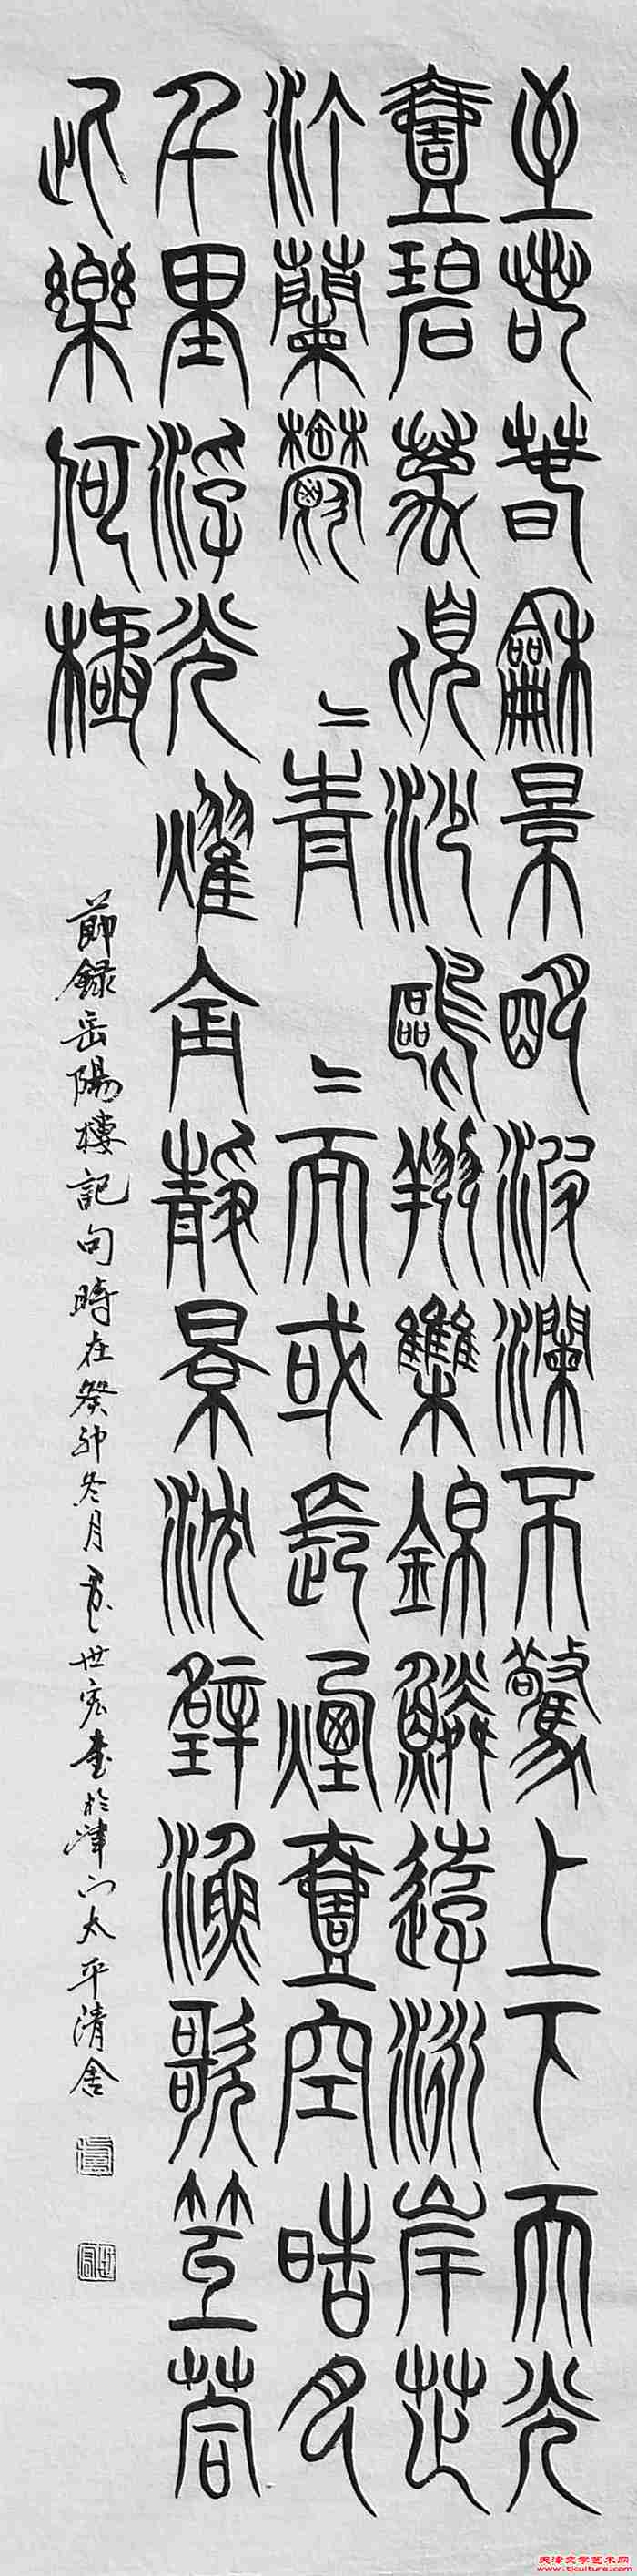 至若春龢景明波瀾不驚上下天光
壹碧萬頃沙鷗翔集錦鱗遊泳岸芷
汀蘭鬱〻青〻而或長煙壹空皓月
千里浮光耀金靜景沈璧漁歌互荅
此樂何極
節錄岳陽樓記句時在癸卯冬月世宏書於津門太平清舍
天津文学艺术网
www.tjculture.com